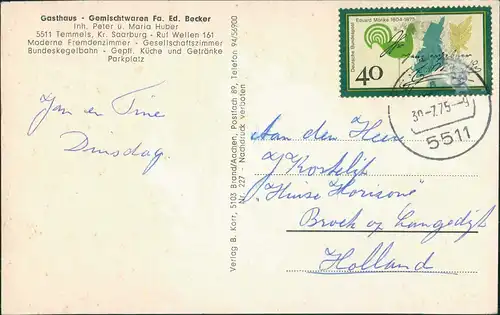 Gasthaus - Gemischtwaren Fa. Ed. Becker
Inh. Peter u. Maria Huber
5511 Temmels, Kr. Saarburg - Ruf Wellen 161
Moderne Fremdenzimmer - Gesellschaftszimmer
Bundeskegelbahn - Gepfl. Küche und Getränke
Parkplatz
Jan en Tine
Dinsdag.
Verlag B. Karr, 5103 Brand/Aachen, Postfach 89, Telefon 94/56900
Nr. 227 - Nachdruck verboten
Deutsche Bundespost
Eduard Mörike 1804-1875
40
30.-7.75.-9
5511
Aan den Heer
J Kostelijk
"Huise Horizone"
Broek op Langedijk
Holland